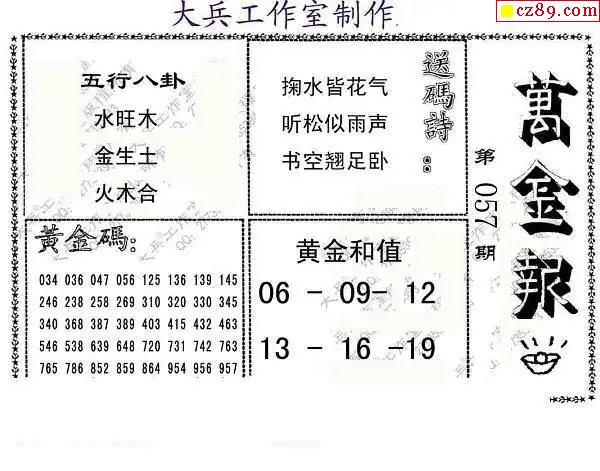 大兵工作室制作
cz89.com
五行八卦
水旺木
金生土
火木合
送碼詩:
掬水皆花气
听松似雨声
书空翘足卧
萬金報
第057期
黃金碼:
034 036 047 056 125 136 139 145
246 238 258 269 310 320 330 345
340 368 387 389 403 415 432 463
546 538 639 648 720 731 742 763
765 786 852 809 864 954 956 957
黄金和值
06 - 09- 12
13 - 16 -19